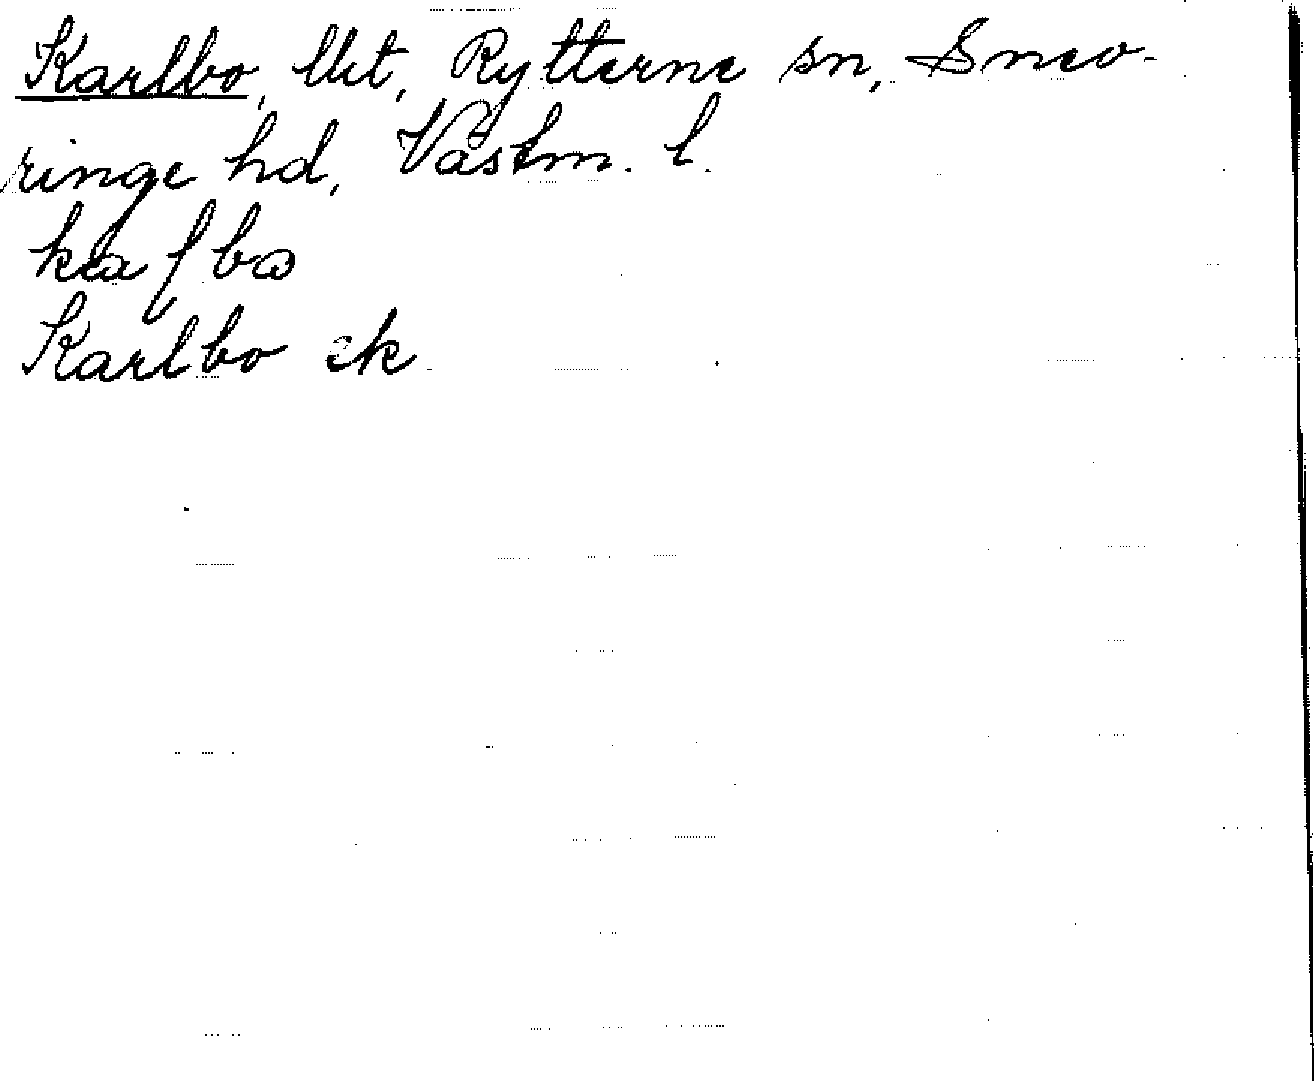 Karlbo, Utk, Rytterne sn, Snev-
ringe hd, Västm. l.
Karlbo ek